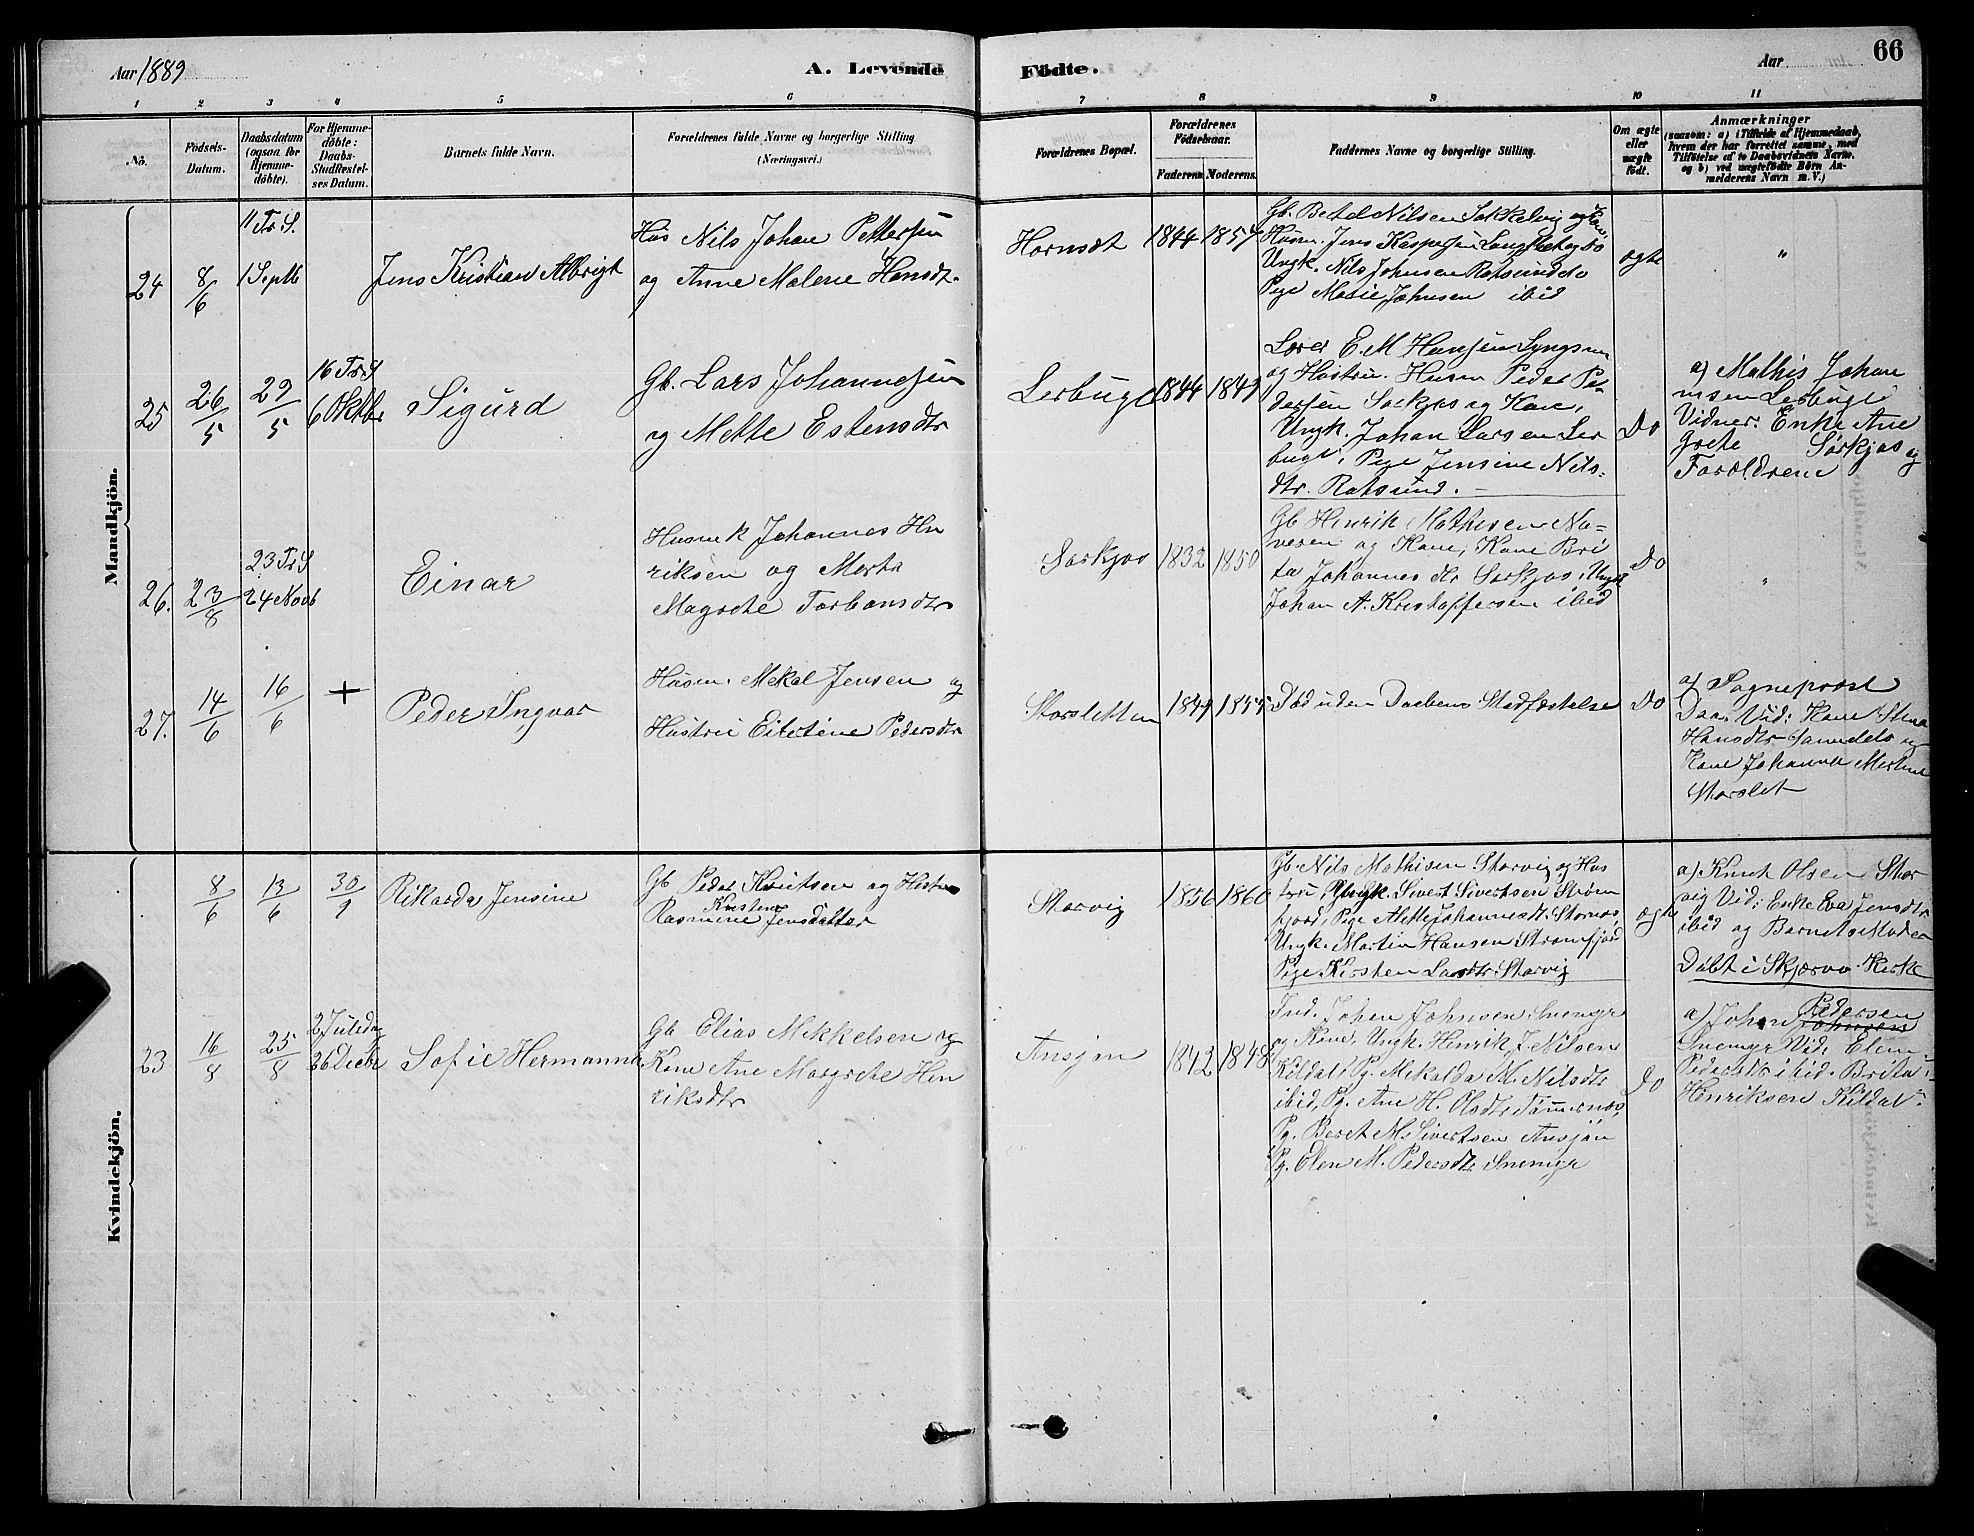 Aar 1889
A. Levende
Födte.
Aar
66
1 2 3 4 5 6 7 8 9 10 11
No.
Födsels-
Datum.
Daabsdatum
(ogsaa for
Hjemme-
döbte).
For Hjemme-
döbte:
Daabs-
Stadfæstel-
ses Datum.
Barnets fulde Navn.
Forældrenes fulde Navne og borgerlige Stilling
(Næringsvei.)
Forældrenes Bopæl.
Forældrenes
Födselsaar.
Faderens Moderens.
Faddernes Navne og borgerlige Stilling.
Om ægte
eller
uægte
födt.
Anmærkninger
(saasom: a) i Tilfælde af Hjemmedaab,
hvem der har forrettet samme, med
Tilföielse af to Daabsvidners Navne,
og b) ved uægtefödte Börn An-
melderens Navn m. V.)
Mandkjön.
24
8/6
11 Tr. S.
1 Septb
Jens Kristian Albrigt
Hus Nils Johan Pettersen
og Anne Malene Hansdt.
Hornset
1844 1857
Gb. Bertel Nilsen Sokkelvig og
Husm. Jens Kaspersen
Ungk. Nils Johnsen Rotsund do
Pige Marie Johnsen ibid
ægte
"
25
26/5
29/5
16 Tr. S
6 Oktbr
Sigurd
Gb. Lars Johannesen
og Mette Estensdtr
Lerbugt
1844 1849
Lærer E. M Hansen
og Hustru. Husm Peder Pe-
dersen Sørkjos og Kone,
Ungk. Johan Larsen Ler
bugt, Pige Jensine Nils-
dtr. Rotsund.
Do
a) Mathis Johan
nsen Lerbugt
Vidner: Enke Ane
Grete Sørkjos og
Forældrene
26.
23/8
23 Tr S
24 Novb
Einar
Husm Johannes Hn
riksen og Marta
Magrete Torbansdtr
Sørkjos
1832 1850
Gb Henrik Mathisen Na-
veren og Kone, Kone Bri
ta Johannes dtr Sørkjos, Ungk
Johan A. Kristoffersen ibid
Do
"
27.
14/6
16/6
+
Peder Ingvar
Husm. Mekal Jensen og
Hustru Pedersdtr
Storsletten
1849
Død uden Daabens Stadfæstelse
Do
a) Sogneprest
Daa. Vid: Kone Stina
Hansdtr og
Kone Johanna
Storslet
Kvindekjön.
8/6
13/6
30/9
Rikarda Jensine
Gb Peder Knutsen og Hustru
Kirstine
Rasmine Jensdatter
Storvig
1856 1860
Gb. Nils Mathisen Storvig og Hus
tru, Ungk. Sivert Sivertsen Strøm
fjord, Pige Mette Johannesdt. Stornes,
Ungk. Martin Hansen Strømfjord
Pige Kirsten Larsdtr. Storvig
ægte
a) Knut Olsen Stor
vig Vid: Enke Eva Jensdtr
ibid og Barnets Moder
Døbt i Skjærvø Kirke
23
16/8
25/8
2 Juledag
26 Decbr
Sofie Hermanna
Gb Elias Mikkelsen og
Kone Ane Margrete Hen
riksdtr
Ansjøn
1842 1848
Ind. Johan Johnsen Snemyr
og Kone, Ungk. Henrik J. Nilsen
Kildal, Pg. Mekalda M. Nilsdtr
ibid, Pg. Ane H. Olsdtr Tømernes,
Pg. Beret M. Sivertsen Ansjøn
Pg. Elen M. Pedersdtr Snemyr
Do
Pedersen
a) Johan Johnsen
Snemyr Vid: Elen
Pedersdtr ibid. Brita
Henriksen Kildal.